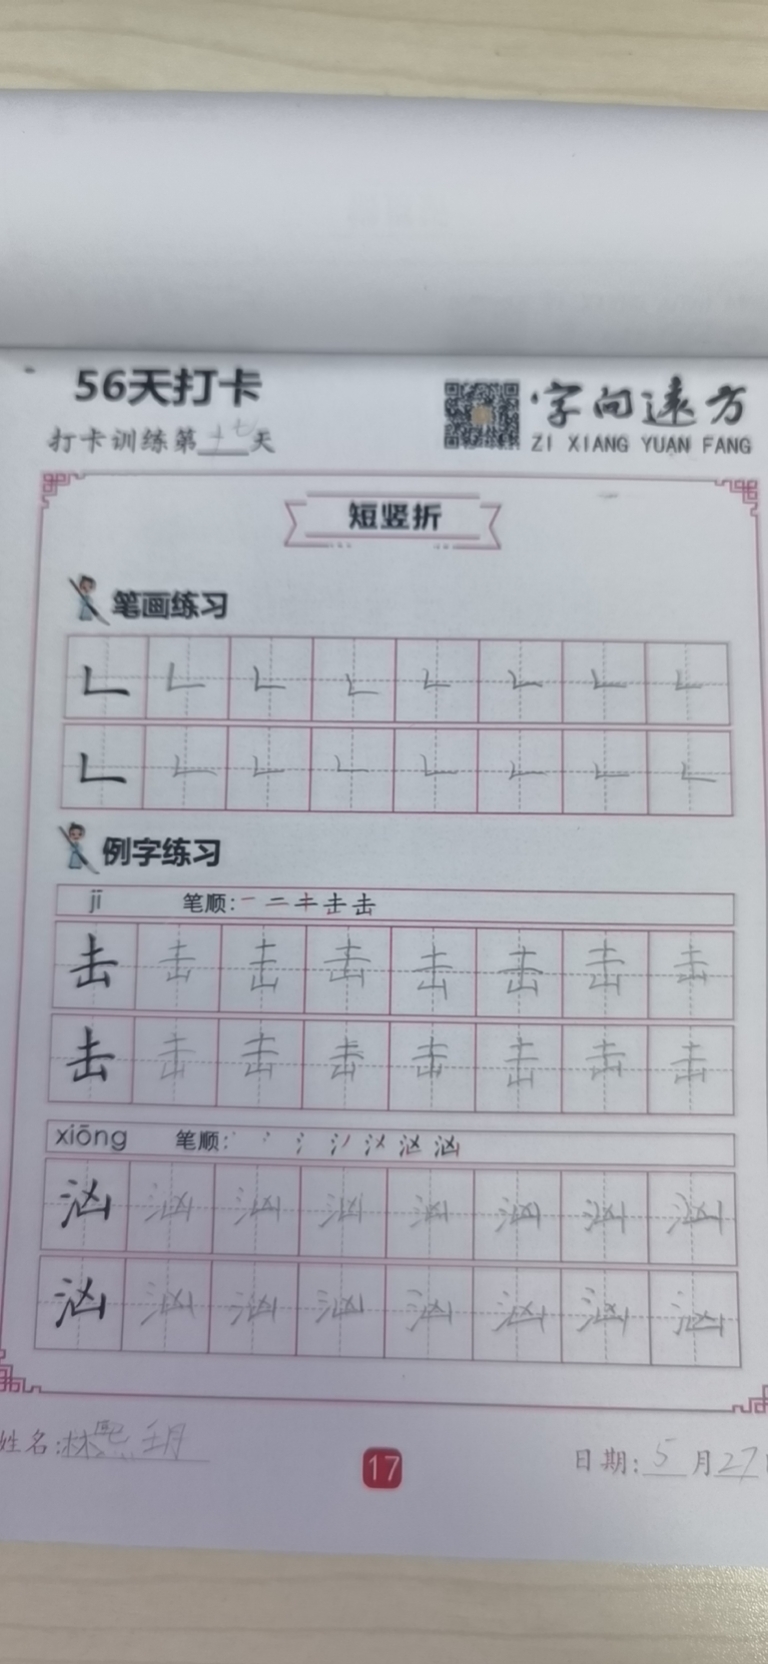 56天打卡
字向远方
打卡训练第十七天
ZI XIANG YUAN FANG
短竖折
笔画练习
𠃊 𠃊 𠃊 𠃊 𠃊 𠃊 𠃊 𠃊
𠃊 𠃊 𠃊 𠃊 𠃊 𠃊 𠃊 𠃊
例字练习
jī 笔顺: 一 二 キ 击 击
击 击 击 击 击 击 击 击
击 击 击 击 击 击 击 击
xiōng 笔顺:
汹 汹 汹 汹 汹 汹 汹 汹
汹 汹 汹 汹 汹 汹 汹 汹
姓名:林熙玥
17
日期:5月27